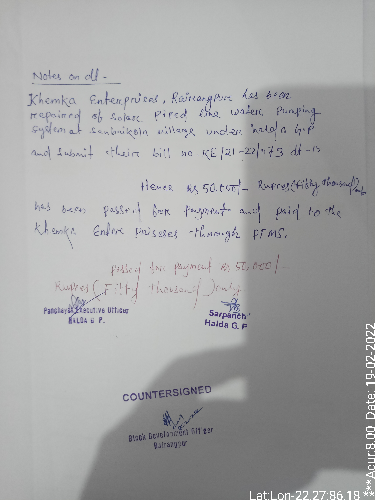 Notes on dt -
Khemka Enterprises, Rairangpur has been
repaired of solar Pired line water Pumping
system at village under Halda G.P
and submit their bill no KE/21-22/473 dt -
Hence Rs 50.000/- Rupees (Fifty thousand) only
has been passed for payment and paid to the
Khemka Enter prises through PFMS.
passed for payment Rs 50.000/-
Rupees (Fifty thousand) only
Panchayat Executive Officer
HALDA G.P.
Sarpanch
Halda G.P
COUNTERSIGNED
Block Development Officer
Rairangpur
Lat:Lon-22.27:86.18 ***Acur:8.00 Date: 19-02-2022